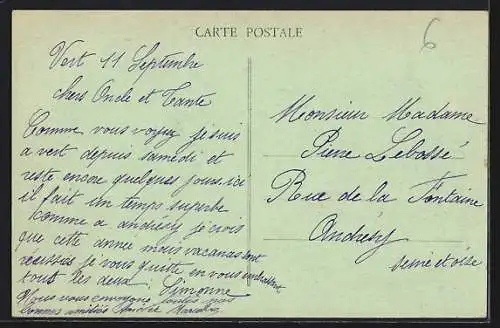 CARTE POSTALE
6
Vert 11 Septembre
chers Oncle et Tante
Comme vous voyez je suis
a vert depuis samedi et
reste encore quelques jours ici
il fait un temps superbe
comme a andrésy je crois
que cette année mais vacances sont
réussies je vous quitte en vous embrassant
tout les deux. Simonne
Nous vous envoyons toutes nos
bonnes amitiés
Monsieur Madame
Pierre Lebossé
Rue de la Fontaine
Andrésy
seine et oise